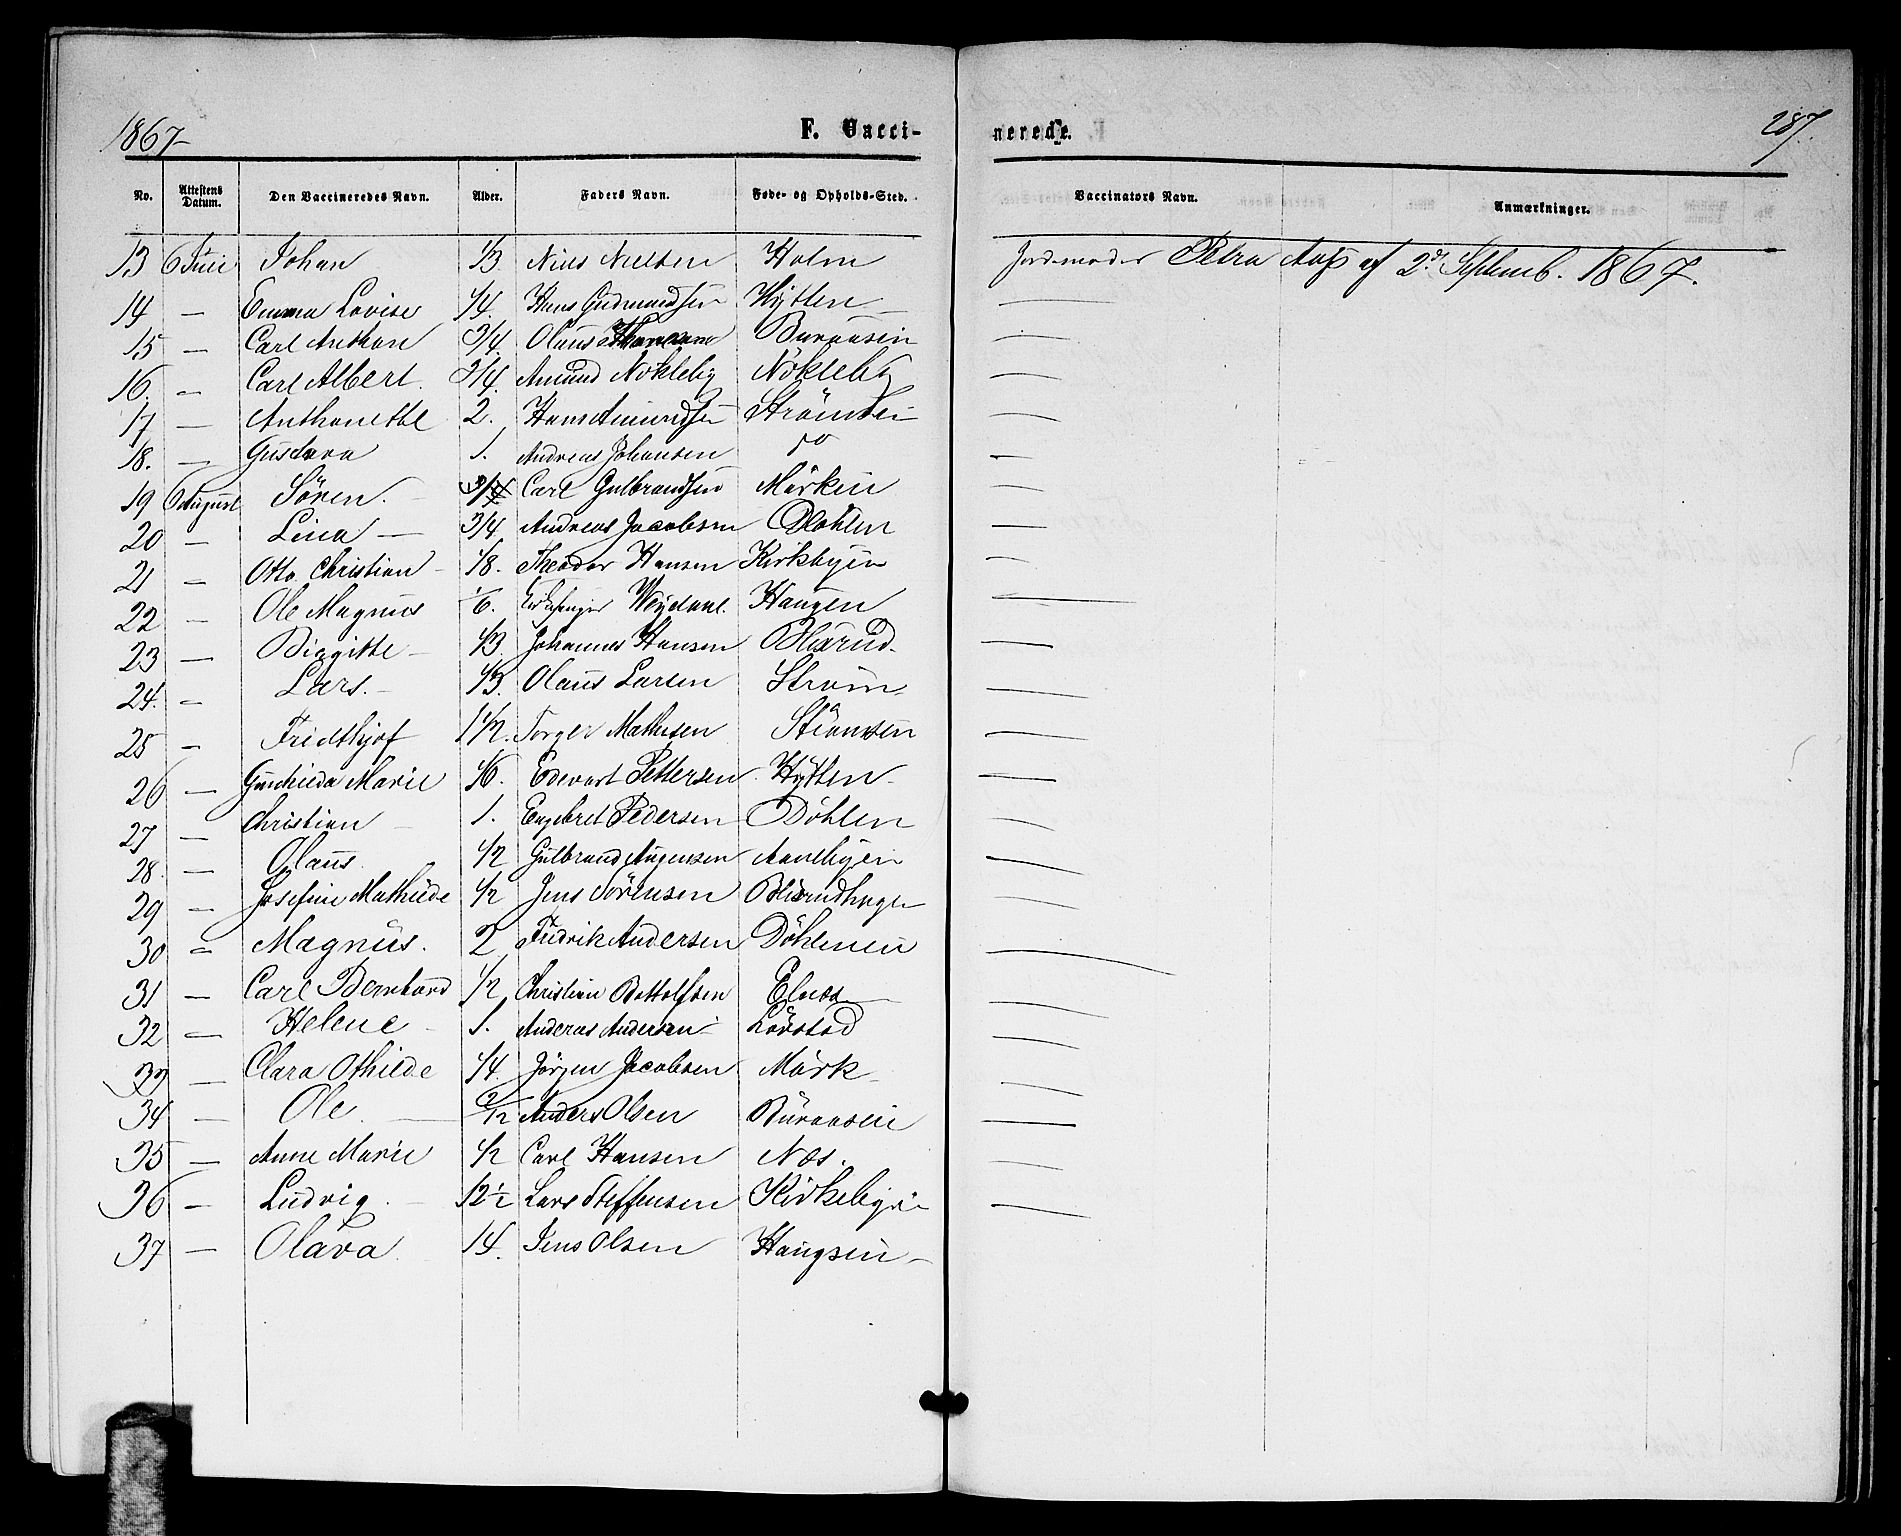 1867
F. Vacci-
nerede.
287.
No.
Attestens Datum.
Den Vaccineredes Navn.
Alder.
Faders Navn.
Føde- og Opholds-Sted.
Vaccinators Navn.
Anmærkninger.
13 6 Juli Johan 1/3 Niels Nielsen Holm Jordemoder Petra Aas af 2de Septemb. 1867.
14 — Emma Lovise 1/4. Hans Gudmundsen Hytten —
15 — Carl Anthon 3/4 Olaus Buraasen —
16. — Carl Albert. 3/4. Amund Nökleby Nökleby —
17 — Anthonette 2. Hans Amundsen —
18. — Gustava 1. Andreas Johansen do —
19 6 August Sören. 3/4 Carl Gulbrandsen Mörkeii —
20 — Lina — 3/4 Andreas Jacobsen Döhlen —
21 — Otto Christian — 1/8. Theodor Hansen Kirkbyen —
22 — Ole Magnus 1/6. Weydahl. Haugen —
23 — Birgitte — 1/3. Johannes Hansen Blixrud. —
24. — Lars. — 1/3. Olaus Larsen Ström —
25 — Fridthjof 1 1/2. Torger Mathisen —
26 — Gunhilda Marie 1/6. Edevart Pettersen Hytten —
27 — Christian — 1. Engebret Pedersen Döhlen —
28. — Olaus. 1/2 Gulbrand Aanebyen —
29 — Josefine Mathilde 1/2 Jens Sörensen Blixrudhagen —
30 — Magnus. 2 Fredrik Andersen Döhleneii —
31 — Carl Bernhard 1/2 Christian Bottolfsen Elnæs —
32 — Helene — 1. Anderas Andersen Lövstad —
33 — Clara Othilde 1/4. Jörgen Jacobsen Mörk —
34 — Ole. — Anders Olsen Buraasen —
35 — Anne Marie 1/2 Carl Hansen Næs. —
36 — Ludvig. — 12 1/2 Lars Steffensen Kirkebyen —
37 — Olava 14. Jens Olsen Haugseii —